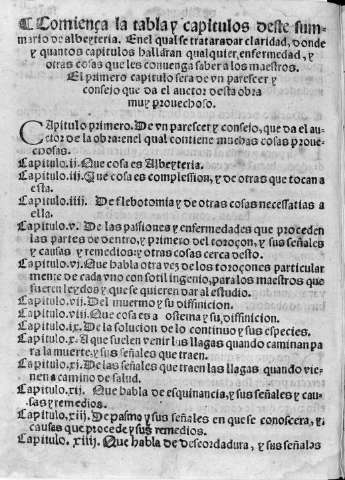 ¶ Comiença la tabla y capitulos deste sum-
mario de albeyteria. En el qual se tratara dar claridad, donde
y quantos capitulos hallaran qualquier enfermedad, y
otras cosas que les convenga saber a los maestros.
El primero capitulo sera de vn parescer y
consejo que da el auctor desta obra
muy prouechoso.
Capitulo primero. De vn parescer y consejo, que da el au-
ctor de la obra: en el qual contiene muchas cosas proue-
chosas.
Capitulo. ii. Que cosa es Albeyteria.
Capitulo. iii. Que cosa es complession, y de otras que tocan a
esta.
Capitulo. iiii. De flebotomia y de otras cosas necessarias a
ella.
Capitulo. v. De las passiones y enfermedades que proceden
las partes de dentro, y primero del toroçon, y sus señales
y causas y remedios: y otras cosas cerca desto.
Capitulo. vj. Que habla otra vez de los toroçones particular
mente de cada vno con sotil ingenio, para los maestros que
fueren leydos y que se quieren dar al estudio.
Capitulo. vij. Del muermo y su diffinicion.
Capitulo. viii. Que cosa es a ostema y su, diffinicion.
Capitulo. ix. De la solucion de lo continuo y sus especies.
Capitulo. x. A que suelen venir las llagas quando caminan pa
ra la muerte, y sus señales que traen.
Capitulo. xj. De las señales que traen las llagas quando vie-
nen a camino de salud.
Capitulo. xij. Que habla de esquinancia, y sus señales y cau-
sas y remedios.
Capitulo. xiij. De pasmo y sus señales en que se conoscera, y
causas que procede y sus remedios.
Capitulo. xiiij. Que habla de descordadura, y sus señales